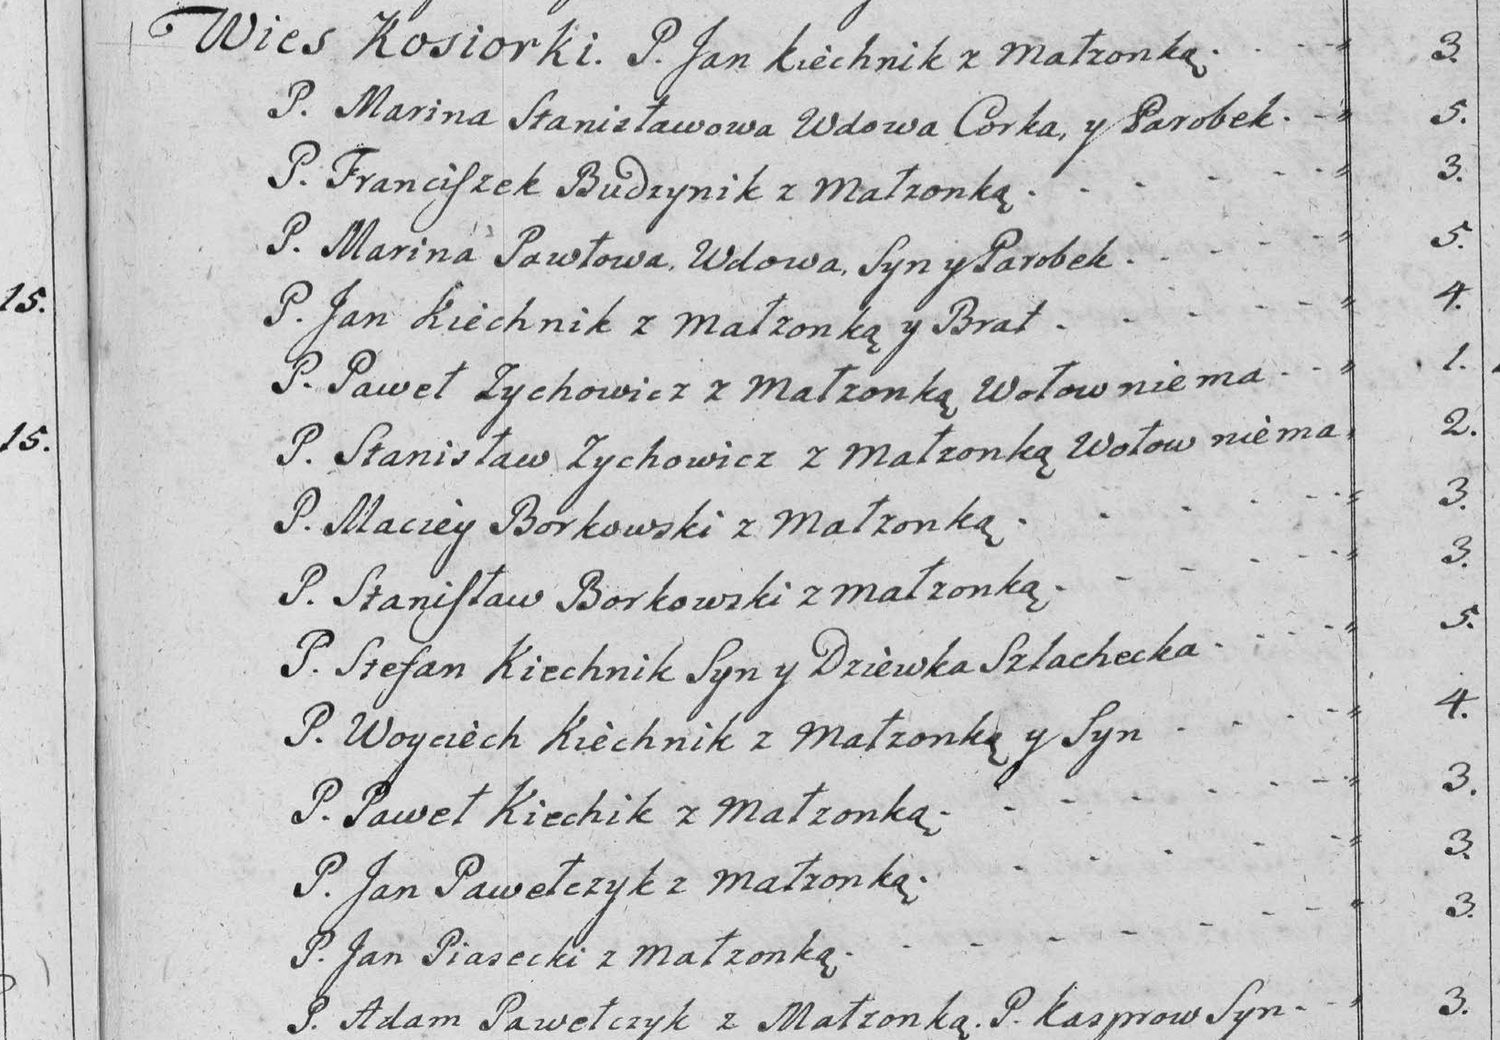 Wies Kosiorki. P. Jan Kiechnik z Małzonką. 3.
P. Marina Stanisławowa Wdowa Corka, y Parobek. 5.
P. Franciszek Budzynik z Małzonką. 3.
P. Marina Pawłowa, Wdowa, Syn y Parobek. 5.
15. P. Jan Kiechnik z Małzonką y Brat. 4.
P. Paweł Zychowicz z Małzonką Wołow niema 1.
15. P. Stanisław Zychowicz z Małzonką Wołow niema, 2.
P. Maciey Borkowski z Małzonką. 3.
P. Stanisław Borkowski z Małzonką. 3.
P. Stefan Kiechnik Syn y Dziewka Szlachecka. 5.
P. Woyciech Kiechnik z Małzonką y Syn 4.
P. Paweł Kiechik z Małzonką. 3.
P. Jan Pawełczyk z Małzonką. 3.
P. Jan Piasecki z Małzonką. 3.
P. Adam Pawełczyk z Małzonką. P. Kasprow Syn. 3.